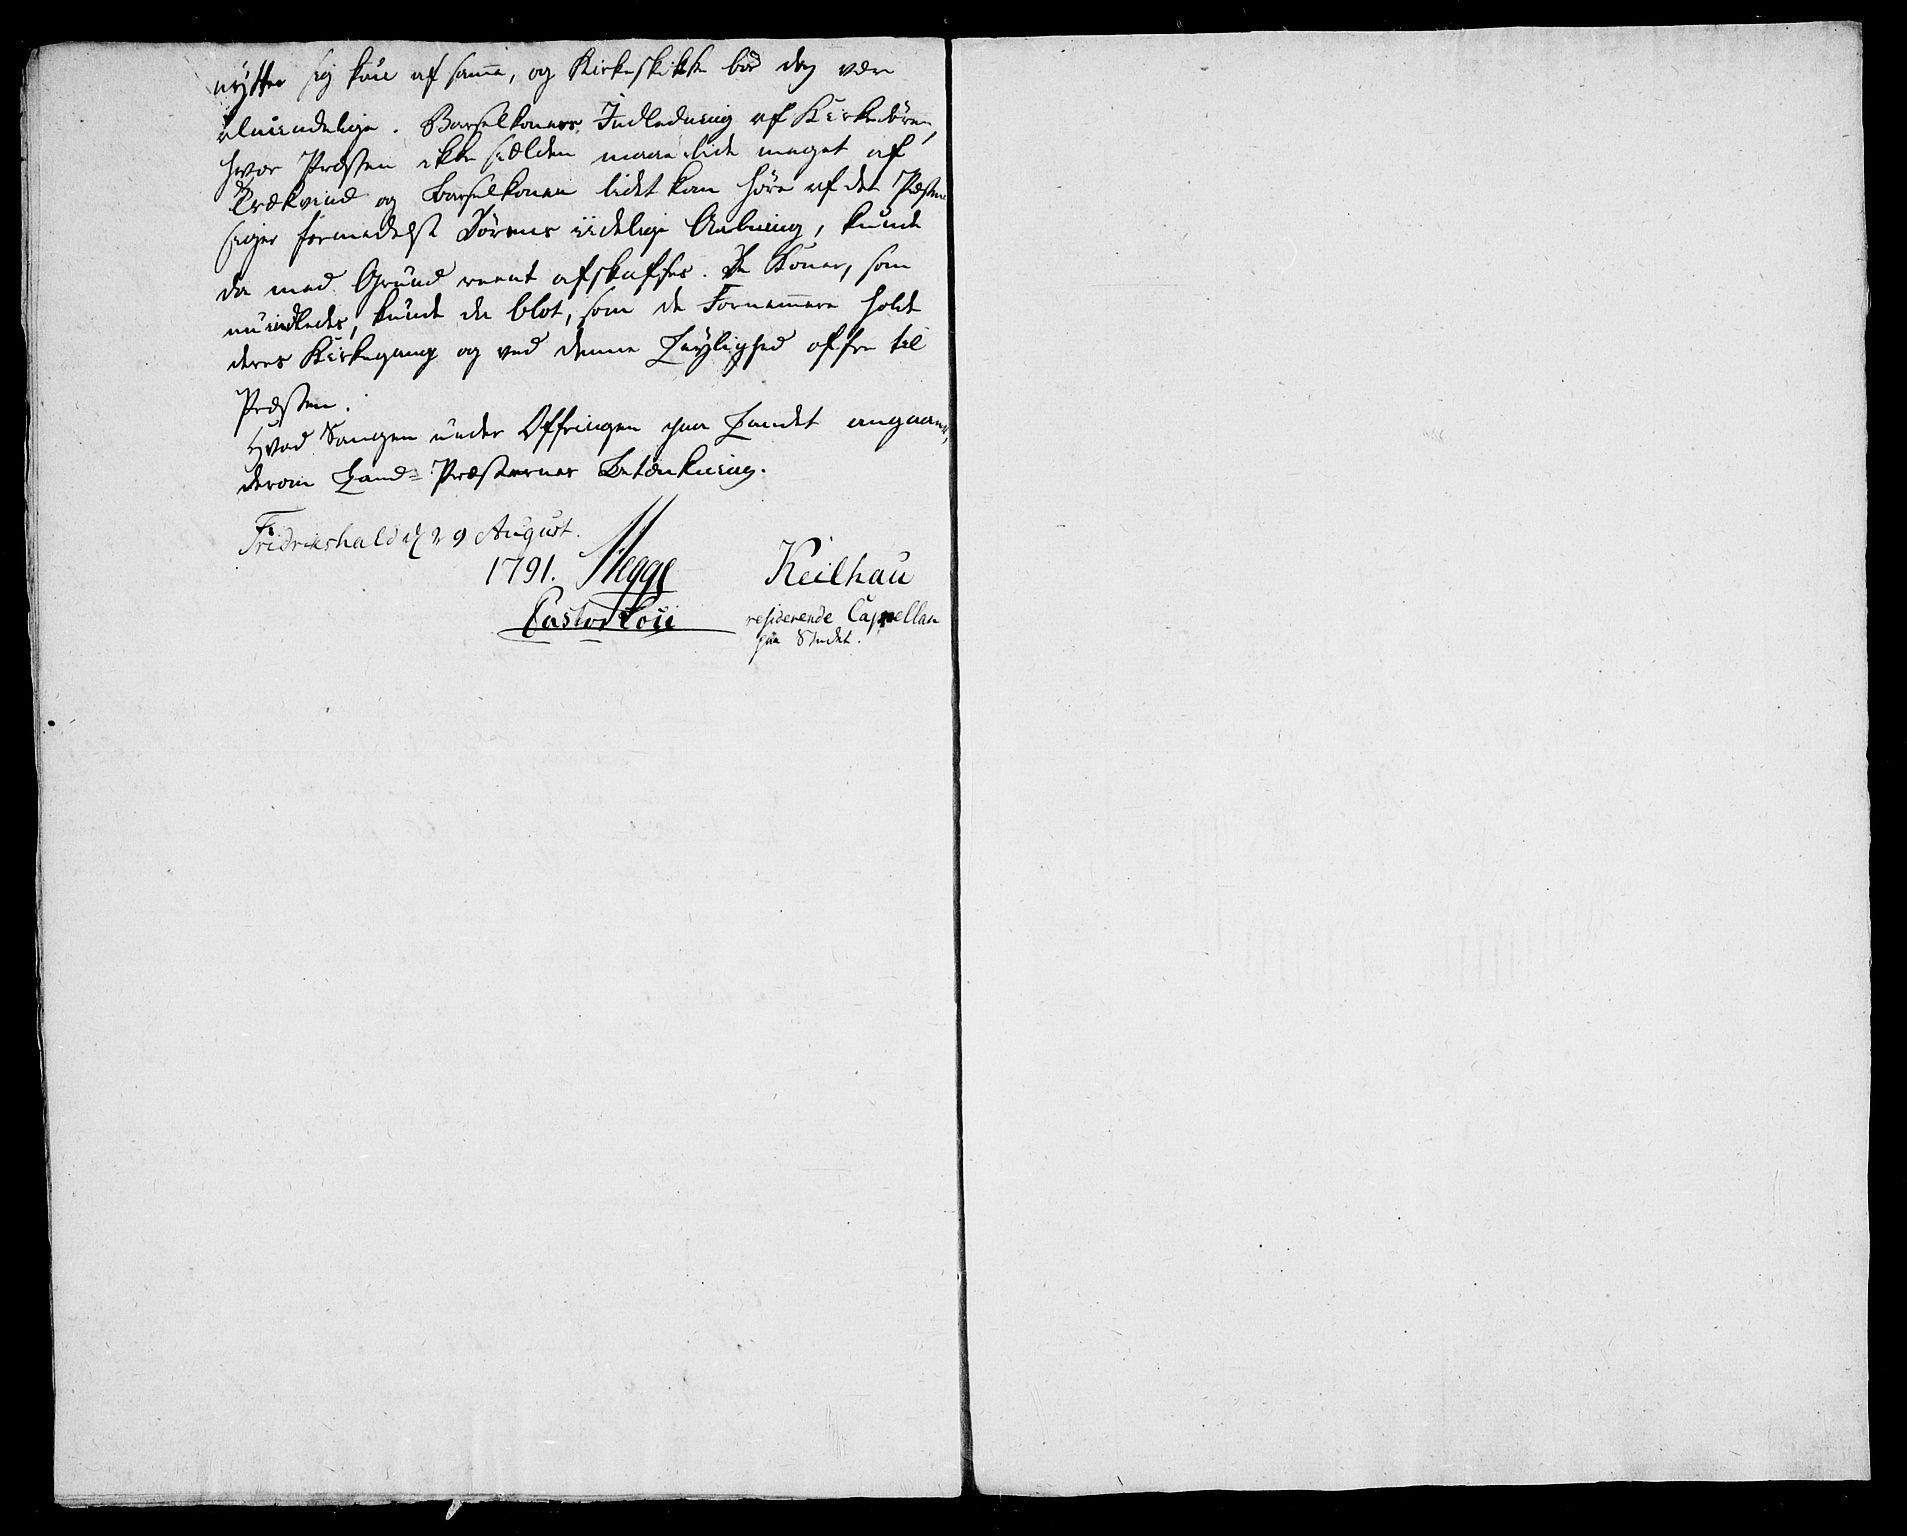 nytter sig kun af samme, og Kirkeskikke bør dog være
almindelige. Barselkoners Indledning af Kirkedören,
hvor Præsten ikke sielden maae lide meget af
Trækvind og Barselkonen lidet kan höre af det Præsten
siger formedelst Dörens idelige Aabning, kunde
da med Grund reent afskaffes. De Koner, som
nu indledes, kunde da blot, som de Fornemmere holde
deres Kirkegang og ved denne Leylighed offre til
Præsten.
Hvad Sangen under Offringen paa Landet angaaer,
derom Land-Præsternes Betænkning.
Fridrikshald d 29 August.
1791. Hegge Keilhau
Pastor Loci residerende Cappellan
paa Stædet.